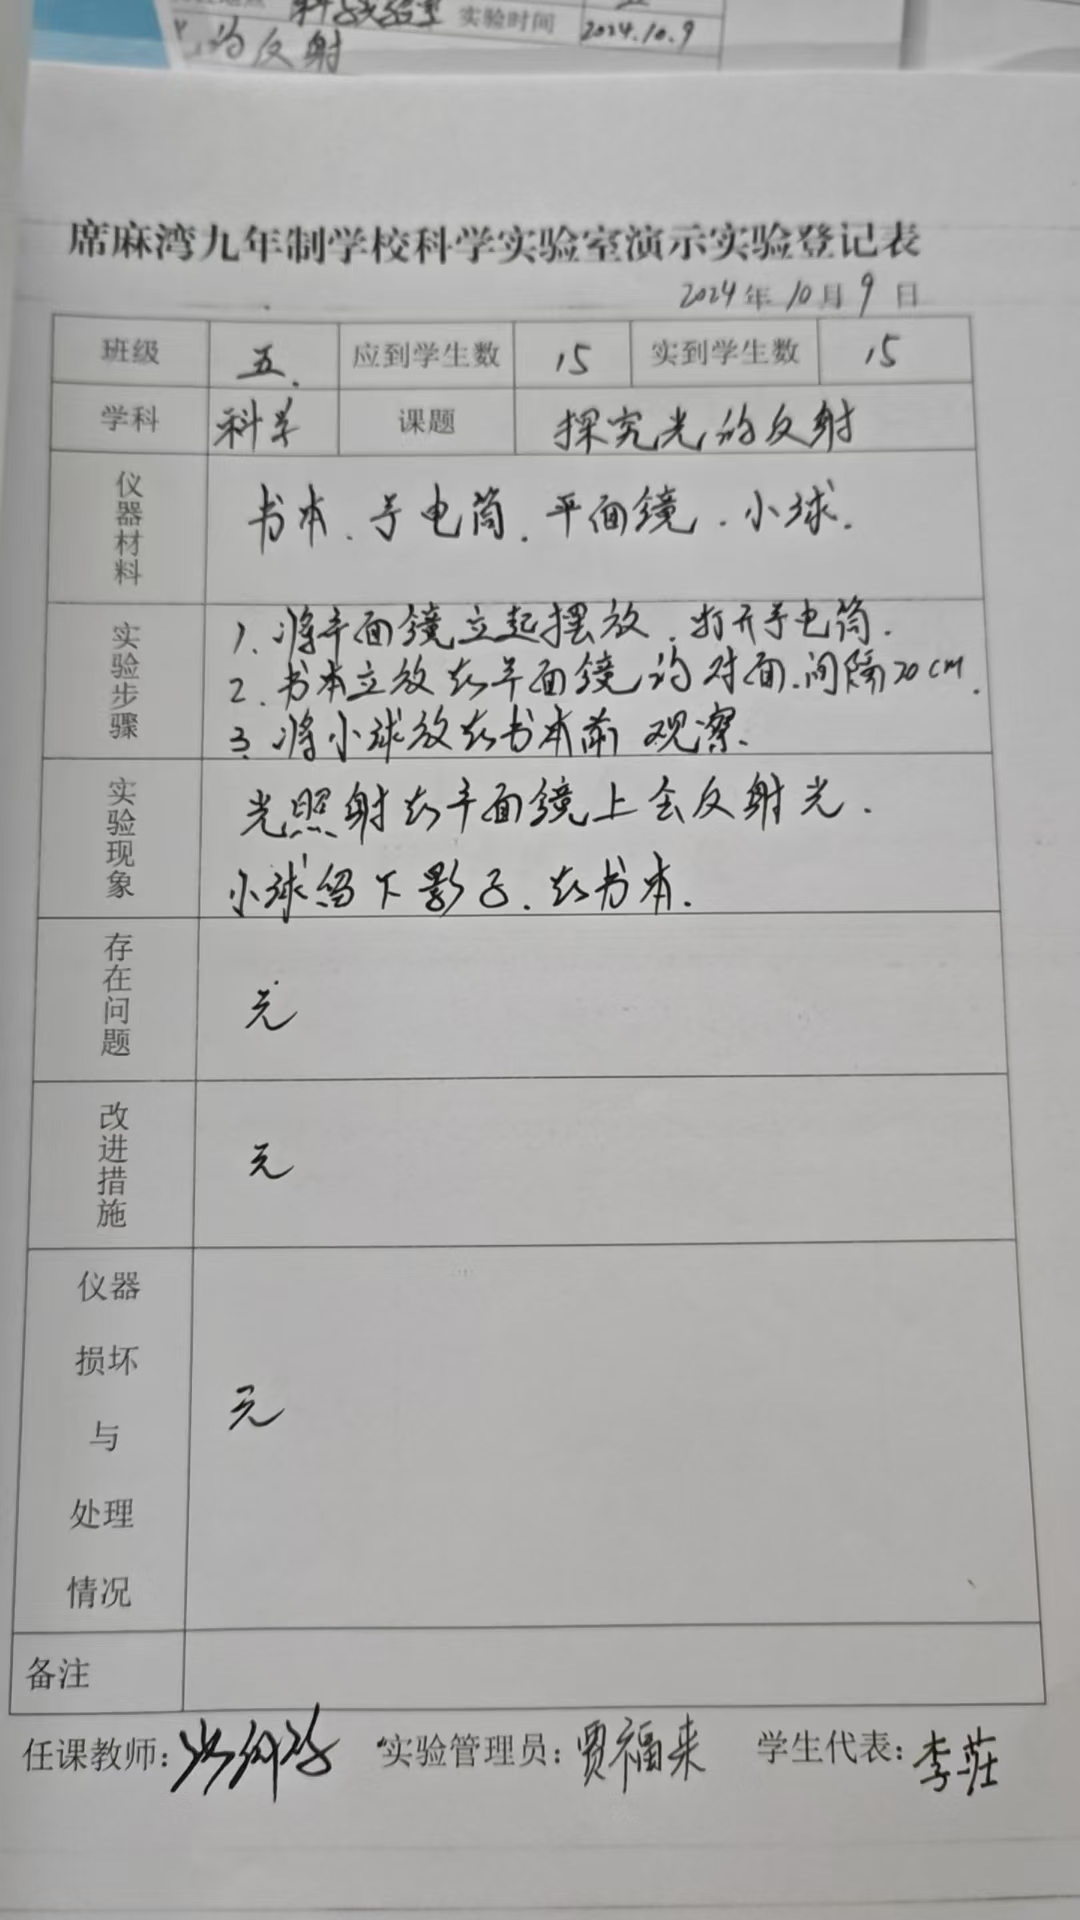 科学实验室 实验时间 2024.10.9
光的反射
席麻湾九年制学校科学实验室演示实验登记表
2024年10月9日
班级 五. 应到学生数 15 实到学生数 15
学科 科学 课题 探究光的反射
仪器材料 书本、手电筒、平面镜、小球.
实验步骤 1、将平面镜立起摆放、打开手电筒.
2、书本立放在平面镜的对面、间隔20cm.
3、将小球放在书本前 观察.
实验现象 光照射在平面镜上会反射光.
小球留下影子、在书本.
存在问题 无
改进措施 无
仪器损坏与处理情况 无
备注
任课教师: 实验管理员: 贾福来 学生代表: 李莊